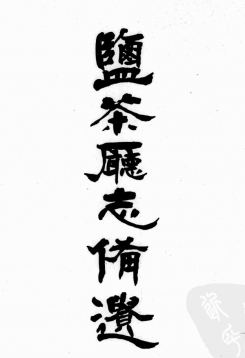 鹽茶廳志備遺